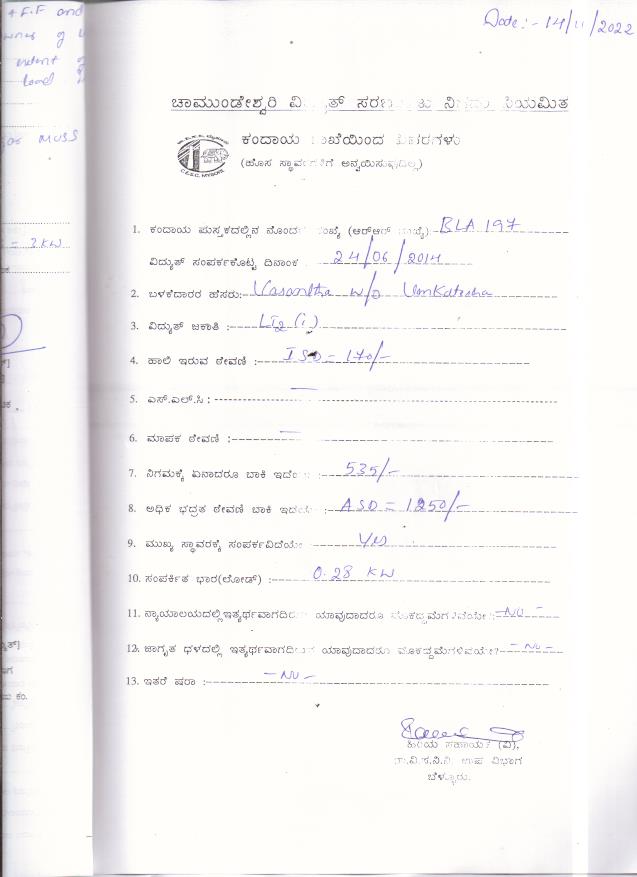 + F.F and
Date:- 14/11/2022
load
ಚಾಮುಂಡೇಶ್ವರಿ ವಿದ್ಯುತ್ ಸರಬರಾಜು ನಿಗಮ ನಿಯಮಿತ
ಕಂದಾಯ ಶಾಖೆಯಿಂದ ವಿವರಗಳು
(ಹೊಸ ಸ್ಥಾವರಗಳಿಗೆ ಅನ್ವಯಿಸುವುದಿಲ್ಲ)
C.E.S.C. MYSORE
for MUSS
1. ಕಂದಾಯ ಪುಸ್ತಕದಲ್ಲಿನ ನೊಂದಣಿ ಸಂಖ್ಯೆ (ಆರ್‌ಆರ್ ಸಂಖ್ಯೆ): BLA 197
= 3 KW
ವಿದ್ಯುತ್ ಸಂಪರ್ಕಕೊಟ್ಟ ದಿನಾಂಕ : 24/06/2014
2. ಬಳಕೆದಾರರ ಹೆಸರು:- Vasantha w/o Venkatesha
3. ವಿದ್ಯುತ್ ಜಕಾತಿ :- LT2 (i)
4. ಹಾಲಿ ಇರುವ ಠೇವಣಿ :- ISD = 170/-
5. ಎಸ್.ಎಲ್.ಸಿ :- —
6. ಮಾಪಕ ಠೇವಣಿ :- —
7. ನಿಗಮಕ್ಕೆ ಏನಾದರೂ ಬಾಕಿ ಇದೆಯೇ :- 535/-
8. ಅಧಿಕ ಭದ್ರತ ಠೇವಣಿ ಬಾಕಿ ಇದೆಯೇ :- ASD = 1250/-
9. ಮುಖ್ಯ ಸ್ಥಾವರಕ್ಕೆ ಸಂಪರ್ಕವಿದೆಯೇ Yes
10. ಸಂಪರ್ಕಿತ ಭಾರ(ಲೋಡ್) :- 0.28 KW
11. ನ್ಯಾಯಾಲಯದಲ್ಲಿ ಇತ್ಯರ್ಥವಾಗದಿರುವ ಯಾವುದಾದರೂ ಮೊಕದ್ದಮೆಗಳಿವೆಯೇ?:- No -
12. ಜಾಗೃತ ಧಳದಲ್ಲಿ ಇತ್ಯರ್ಥವಾಗದಿರುವ ಯಾವುದಾದರೂ ಮೊಕದ್ದಮೆಗಳಿವೆಯೇ? - No -
13. ಇತರೆ ಷರಾ :- - No -
ಹಿರಿಯ ಸಹಾಯಕ (ವಿ),
ಚಾ.ವಿ.ಸ.ನಿ.ನಿ. ಉಪ ವಿಭಾಗ
ಬೆಳ್ಳೂರು.